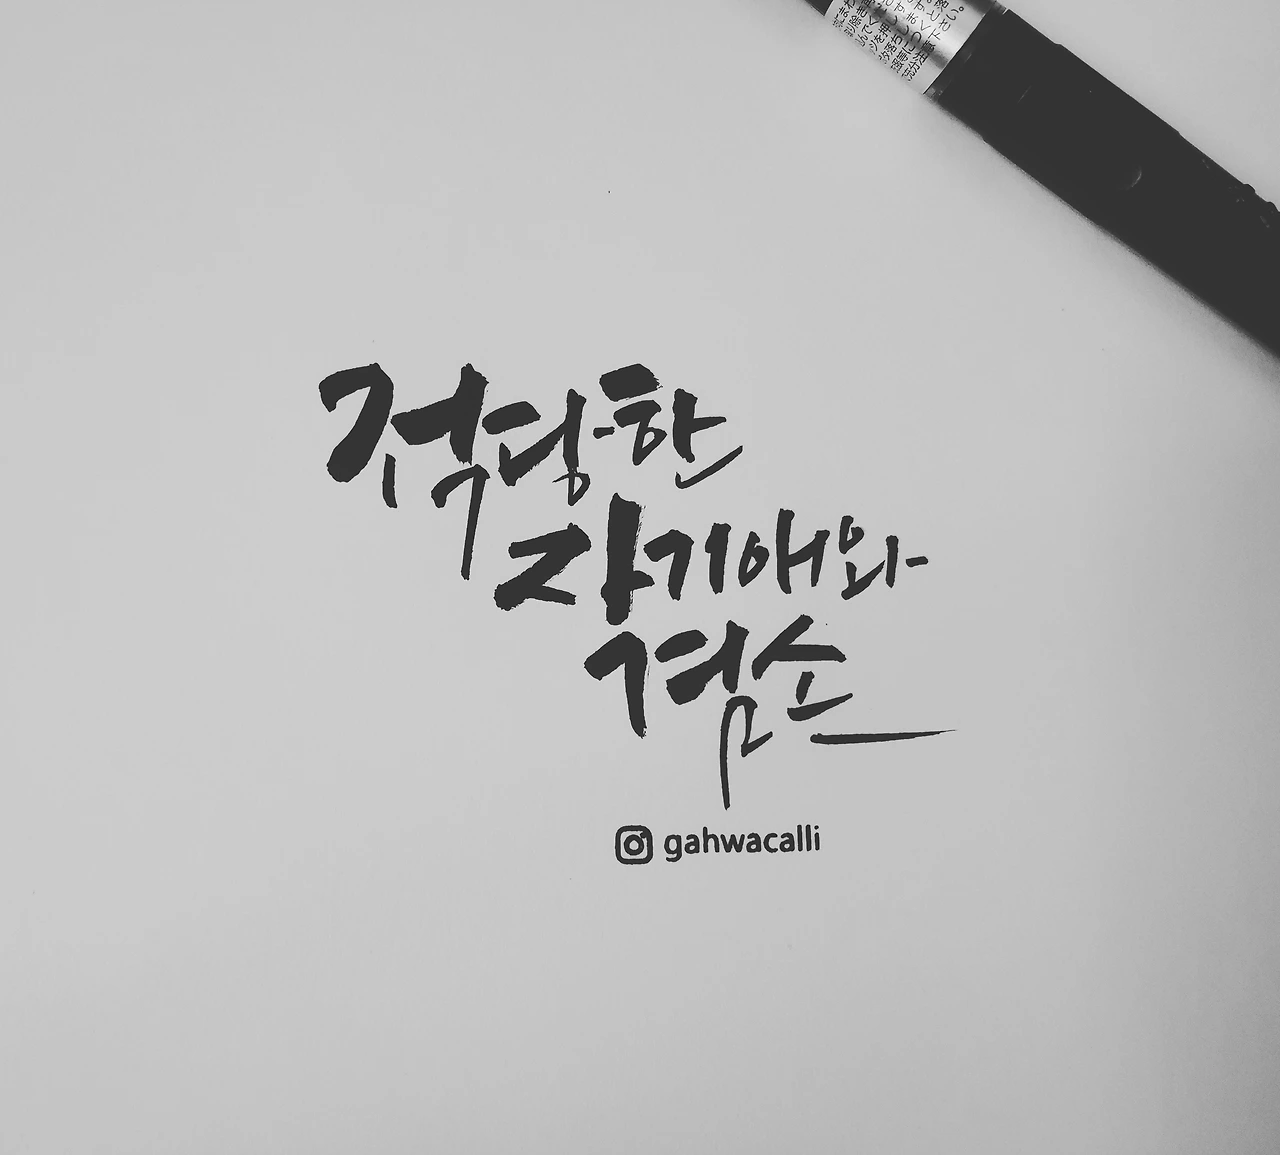 적당한
자기애와
겸손
gahwacalli